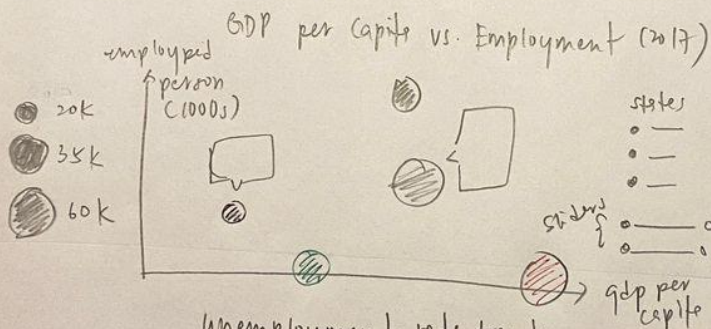 GDP per Capita vs. Employment (2017)
employed
person
(1000s)
20K
35K
60K
states
sliders
gdp per
capita
unemployment rate